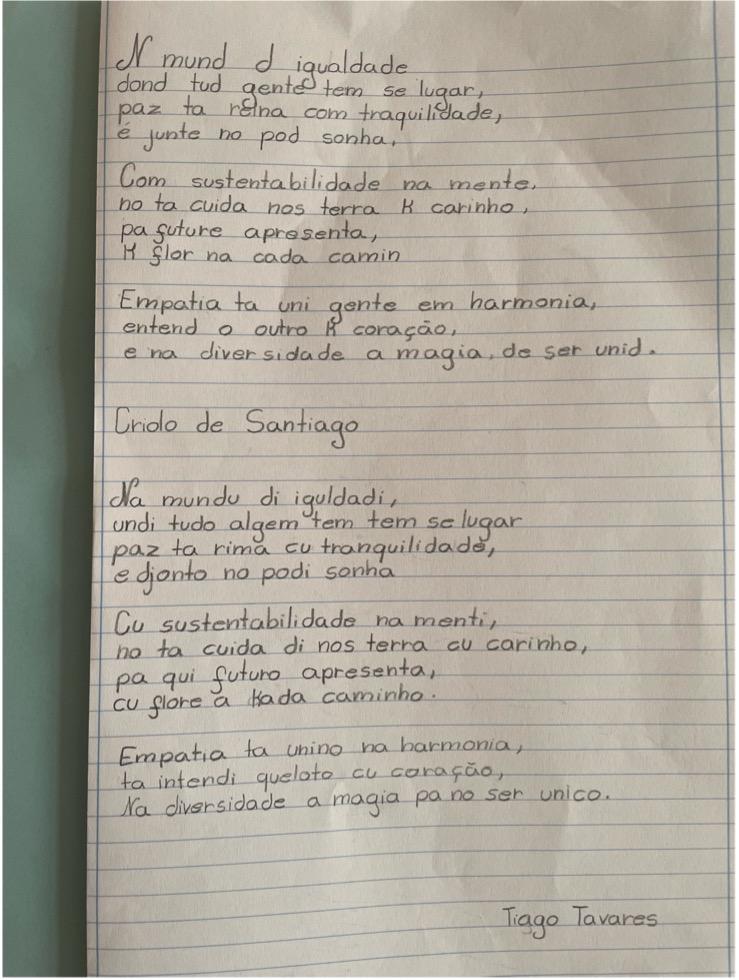 N mund d igualdade
dond tud gente tem se lugar,
paz ta reina com traquilidade,
é junte no pod sonha,
Com sustentabilidade na mente,
no ta cuida nos terra K carinho,
pa future apresenta,
K flor na cada camin
Empatia ta uni gente em harmonia,
entend o outro K coração,
e na diversidade a magia, de ser unid.
Criolo de Santiago
Na mundu di iguldadi,
undi tudo algem tem tem se lugar
paz ta rima cu tranquilidade,
e djonto no podi sonha
Cu sustentabilidade na menti,
no ta cuida di nos terra cu carinho,
pa qui futuro apresenta,
cu flore a Kada caminho.
Empatia ta unino na harmonia,
ta intendi queloto cu coração,
Na diversidade a magia pa no ser unico.
Tiago Tavares